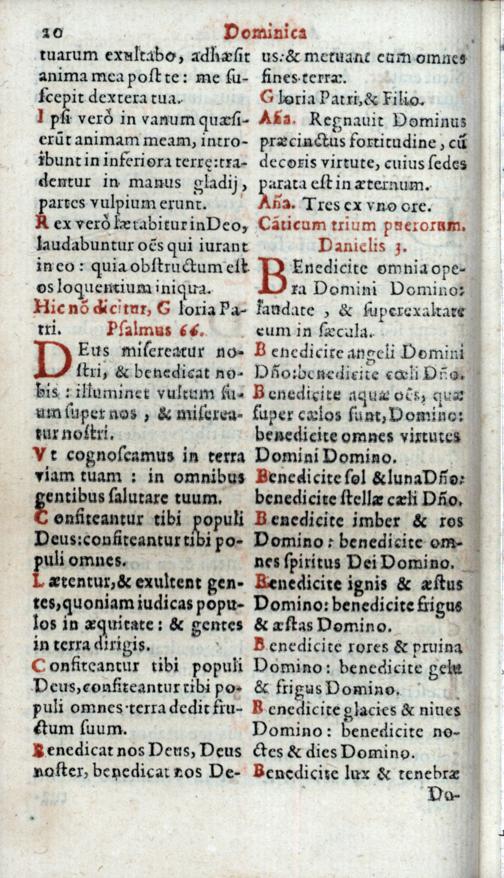 20 Dominica
tuarum exultabo, adhæsit
anima mea post te: me su-
scepit dextera tua.
Ipsi verò in vanum quæsi-
erūt animam meam, intro-
ibunt in inferiora terrę: tra-
dentur in manus gladij,
partes vulpium erunt.
Rex verò lætabitur in Deo,
laudabuntur oēs qui iurant
in eo: quia obstructum est
os loquentium iniqua.
Hic nō dicitur, Gloria Pa-
tri. Psalmus 66.
DEus misereatur no-
stri, & benedicat no-
bis: illuminet vultum su-
um super nos, & miserea-
tur nostri.
Vt cognoscamus in terra
viam tuam: in omnibus
gentibus salutare tuum.
Confiteantur tibi populi
Deus: confiteantur tibi po-
puli omnes.
Lætentur, & exultent gen-
tes, quoniam iudicas popu-
los in æquitate: & gentes
in terra dirigis.
Confiteantur tibi populi
Deus, confiteantur tibi po-
puli omnes terra dedit fru-
ctum suum.
Benedicat nos Deus, Deus
noster, benedicat nos De-
us: & metuant eum omnes
fines terræ.
Gloria Patri, & Filio.
Aña. Regnauit Dominus
præcinctus fortitudine, cū
decoris virtute, cuius sedes
parata est in æternum.
Aña. Tres ex vno ore.
Cāticum trium puerorum.
Danielis 3.
BEnedicite omnia ope-
ra Domini Domino:
laudate, & superexaltate
eum in sæcula.
Benedicite angeli Domini
Dño: benedicite cœli Dño.
Benedicite aquæ oēs, quæ
super cælos sunt, Domino:
benedicite omnes virtutes
Domini Domino.
Benedicite sol & luna Dño:
benedicite stellæ cæli Dño.
Benedicite imber & ros
Domino: benedicite om-
nes spiritus Dei Domino.
Benedicite ignis & æstus
Domino: benedicite frigus
& æstas Domino.
Benedicite rores & pruina
Domino: benedicite gelu
& frigus Domino.
Benedicite glacies & niues
Domino: benedicite no-
ctes & dies Domino.
Benedicite lux & tenebræ
Do-